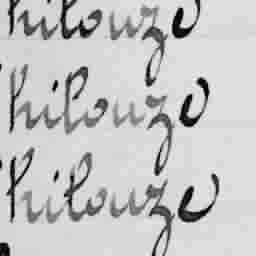 hilouze
hilouze
hilouze